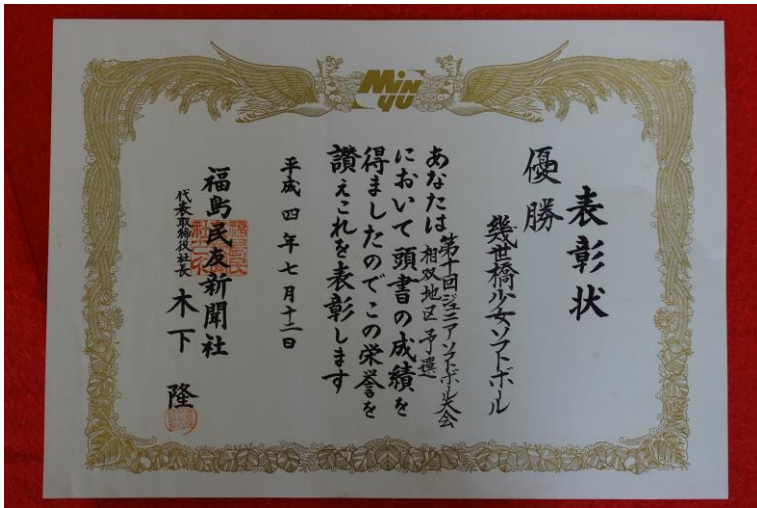 MiN YU
表彰状
優勝
幾世橋少女ソフトボール
あなたは第十回ジュニアソフトボール大会
相双地区予選
において頭書の成績を
得ましたのでこの栄誉を
讃えこれを表彰します
平成四年七月十二日
福島民友新聞社
代表取締役社長 木下 隆